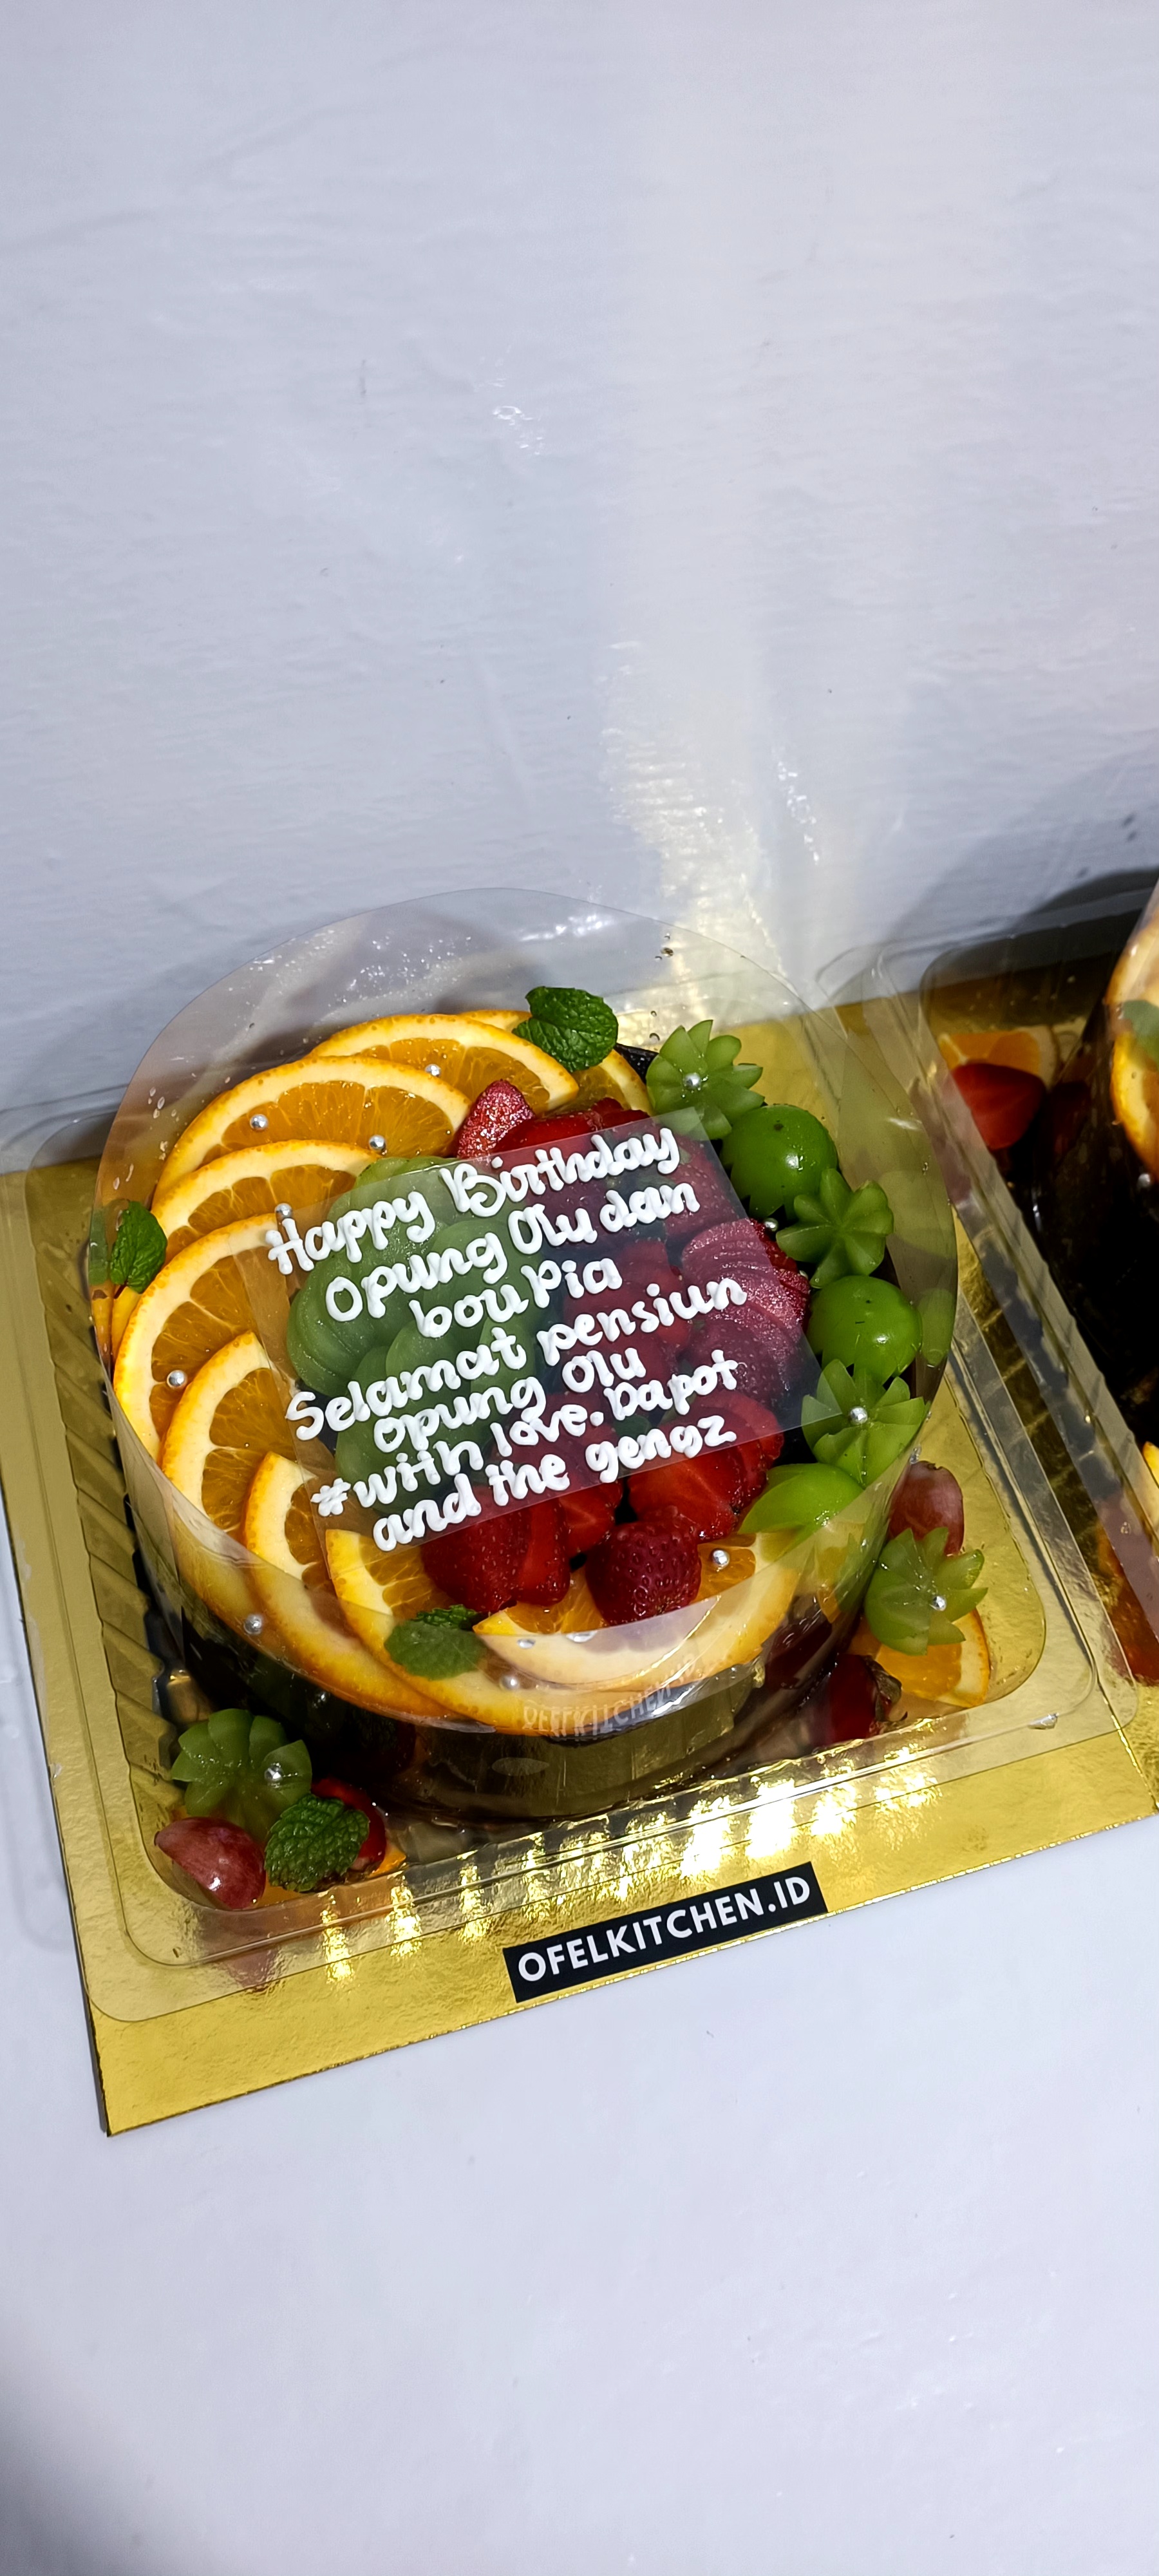 Happy Birthday
Opung Olu dan
bou Pia
Selamat pensiun
opung Olu
#with love. Dapot
and the gengz
OFELKITCHEN
OFELKITCHEN.ID